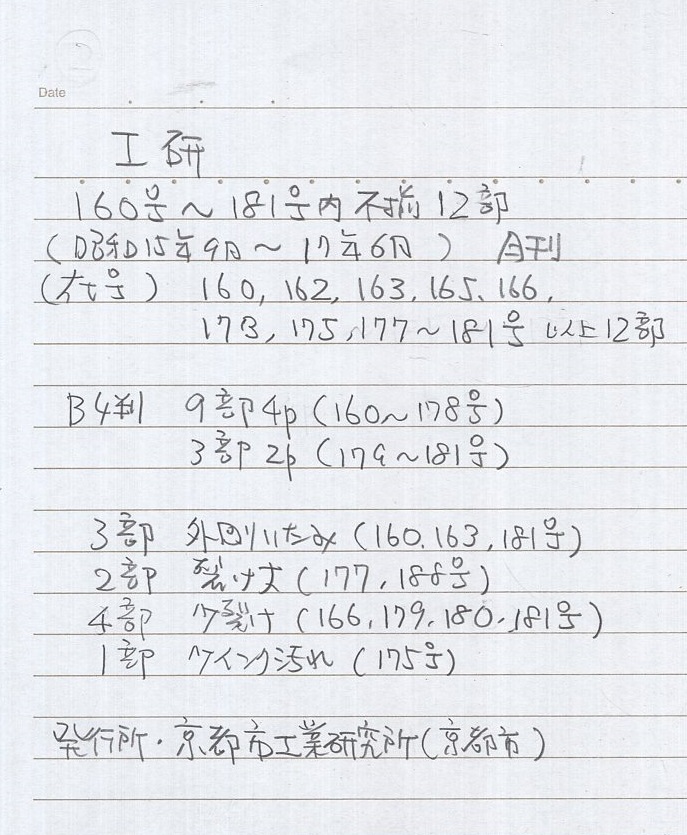 Date
工研
160号～181号内 不揃 12部
(昭和15年9月～17年6月) 月刊
(存号) 160, 162, 163, 165, 166,
173, 175, 177～181号 以上12部
B4判 9部4p (160～178号)
3部2p (179～181号)
3部 外回りいたみ (160, 163, 181号)
2部 裂け大 (177, 188号)
4部 少裂け (166, 179, 180, 181号)
1部 少インク汚れ (175号)
発行所・京都市工業研究所(京都市)